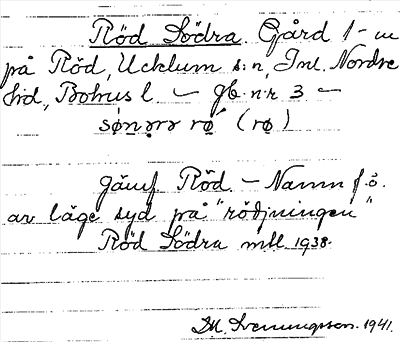 Röd Södra. Gård 1-m
på Röd, Ucklum s:n, Inl. Nordre
hd, Bohus l. — jb. nr 3 —
sønǝrǝ rø̀ (rø)
jämf. Röd. — Namn f. ö.
av läge syd på "rödjningen"
Röd Södra mtl 1938.
M. Svenungsson. 1941.